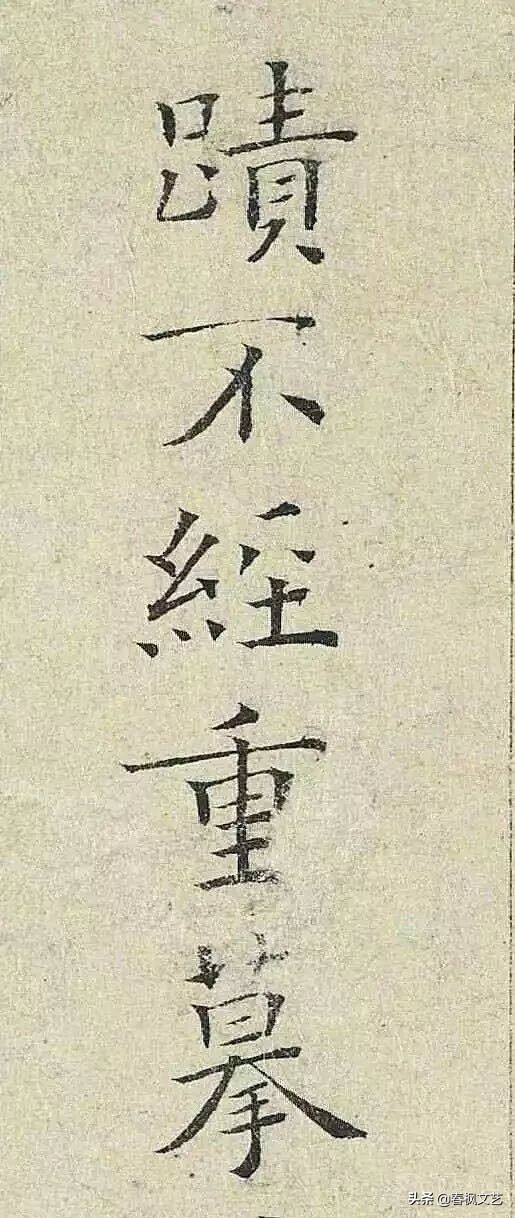 蹟不經重摹
头条 @春枫文艺